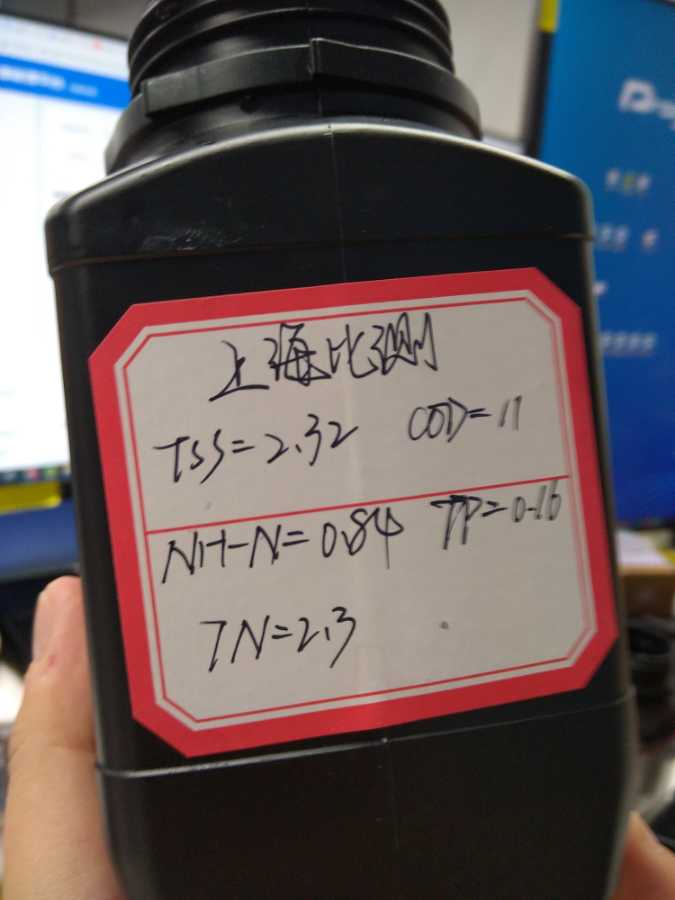 上海比测
TSS=2.32 COD=11
NH-N=0.84 TP=0.16
TN=2.3